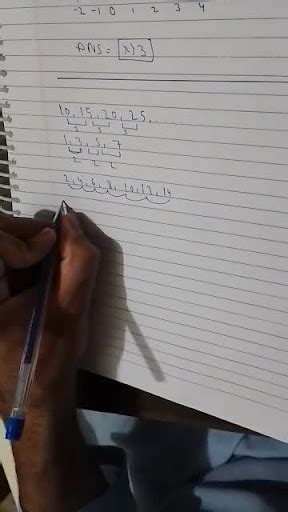 -2 -1 0 1 2 3 4
ANS = x>3
10, 15, 20, 25, ......
5 5 5
1, 3, 5, 7
2 2 2
2, 4, 6, 8, 10, 12, 14